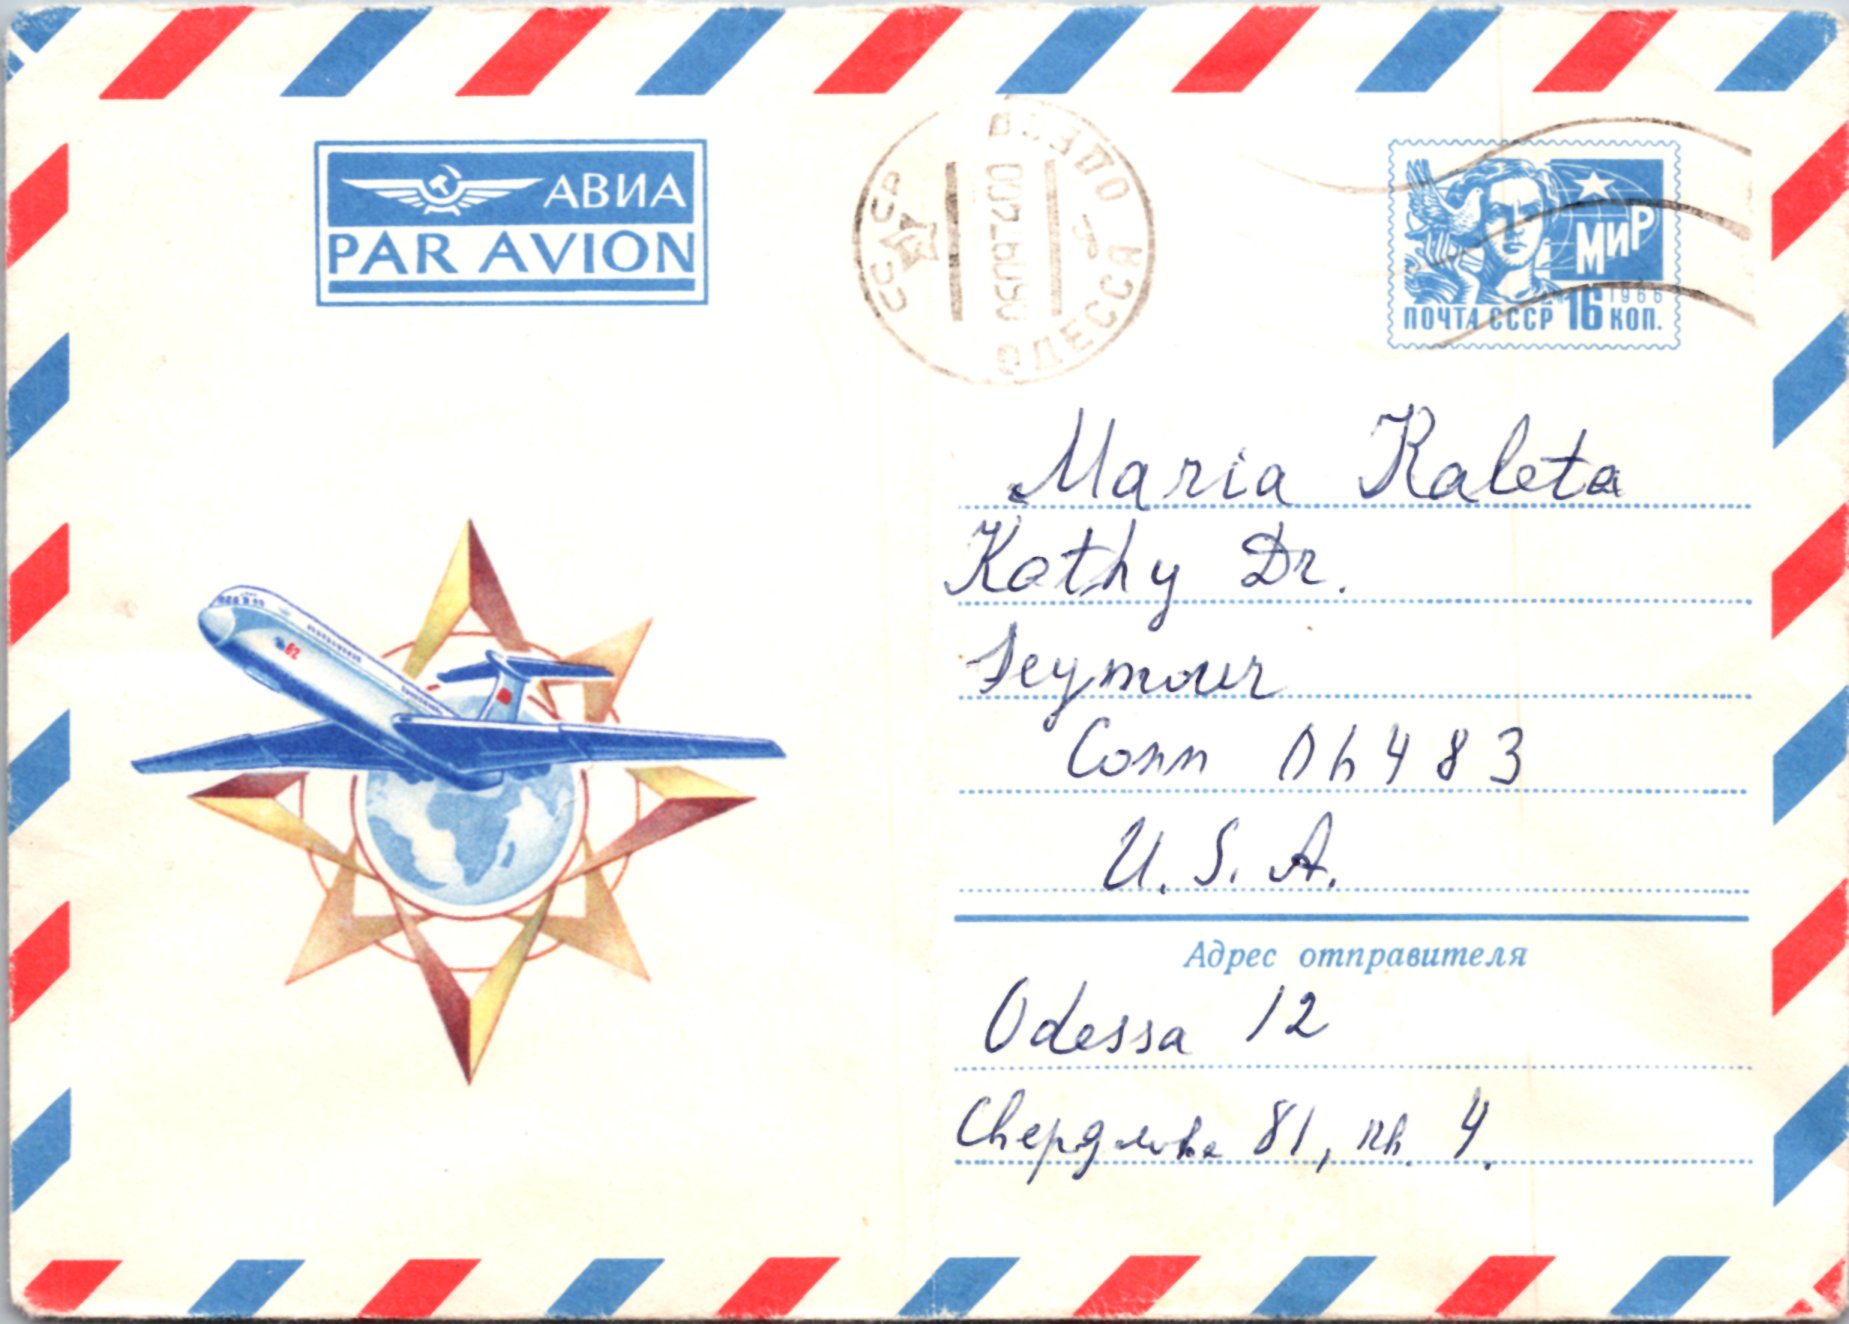 АВИА
PAR AVION
СССР
ОДЕССА
МИР
1966
ПОЧТА СССР 16 КОП.
Maria Kaleta
Kathy Dr.
Seymour
Conn 06483
U. S. A.
Адрес отправителя
Odessa 12
81, кв. 4.